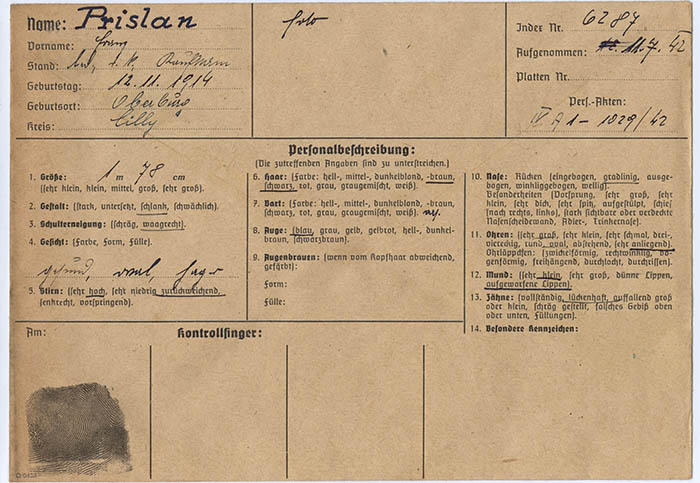 Name: Prislan
Vorname: Franz
Stand: led.
Geburtstag: 12. 11. 1914
Geburtsort: Oberburg
Kreis: Cilly
Foto
Index Nr. 6287
Aufgenommen: 11. 7. 42
Platten Nr.
Pers.-Akten:
IV A 1 – 1029/42
Personalbeschreibung:
(Die zutreffenden Angaben sind zu unterstreichen.)
1. Größe: 1 m 78 cm
(sehr klein, klein, mittel, groß, sehr groß).
2. Gestalt: (stark, untersetzt, schlank, schwächlich).
3. Schulterneigung: (schräg, waagrecht).
4. Gesicht: (Farbe, Form, Fülle).
gesund, oval, hager
5. Stirn: (sehr hoch, sehr niedrig, zurückweichend,
senkrecht, vorspringend).
6. Haar: (Farbe: hell-, mittel-, dunkelblond, -braun,
schwarz, rot, grau, graumischt, weiß).
7. Bart: (Farbe: hell-, mittel-, dunkelblond, -braun,
schwarz, rot, grau, graugemischt, weiß).
8. Auge: (blau, grau, gelb, gelbrot, hell-, dunkel-
braun, schwarzbraun).
9. Augenbrauen: (wenn vom Kopfhaar abweichend,
gefärbt):
Form:
Fülle:
10. Nase: Rücken (eingebogen, gradlinig, ausge-
bogen, winkliggebogen, wellig).
Besonderheiten (Vorsprung, sehr groß, sehr
klein, sehr dick, sehr spitz, aufgestülpt, schief
[nach rechts, links], stark sichtbare oder verdeckte
Nasenscheidewand, Adler-, Trinkernase).
11. Ohren: (sehr groß, sehr klein, sehr schmal, drei-,
viereckig, rund, oval, abstehend, sehr anliegend).
Ohrläppchen: (zwickelförmig, rechtwinklig, bo-
genförmig, freihängend, durchlocht, durchrissen).
12. Mund: (sehr klein, sehr groß, dünne Lippen,
aufgeworfene Lippen).
13. Zähne: (vollständig, lückenhaft, auffallend groß
oder klein, schräg gestellt, falsches Gebiß oben
oder unten, Füllungen).
14. Besondere Kennzeichen:
Am:
Kontrollfinger: